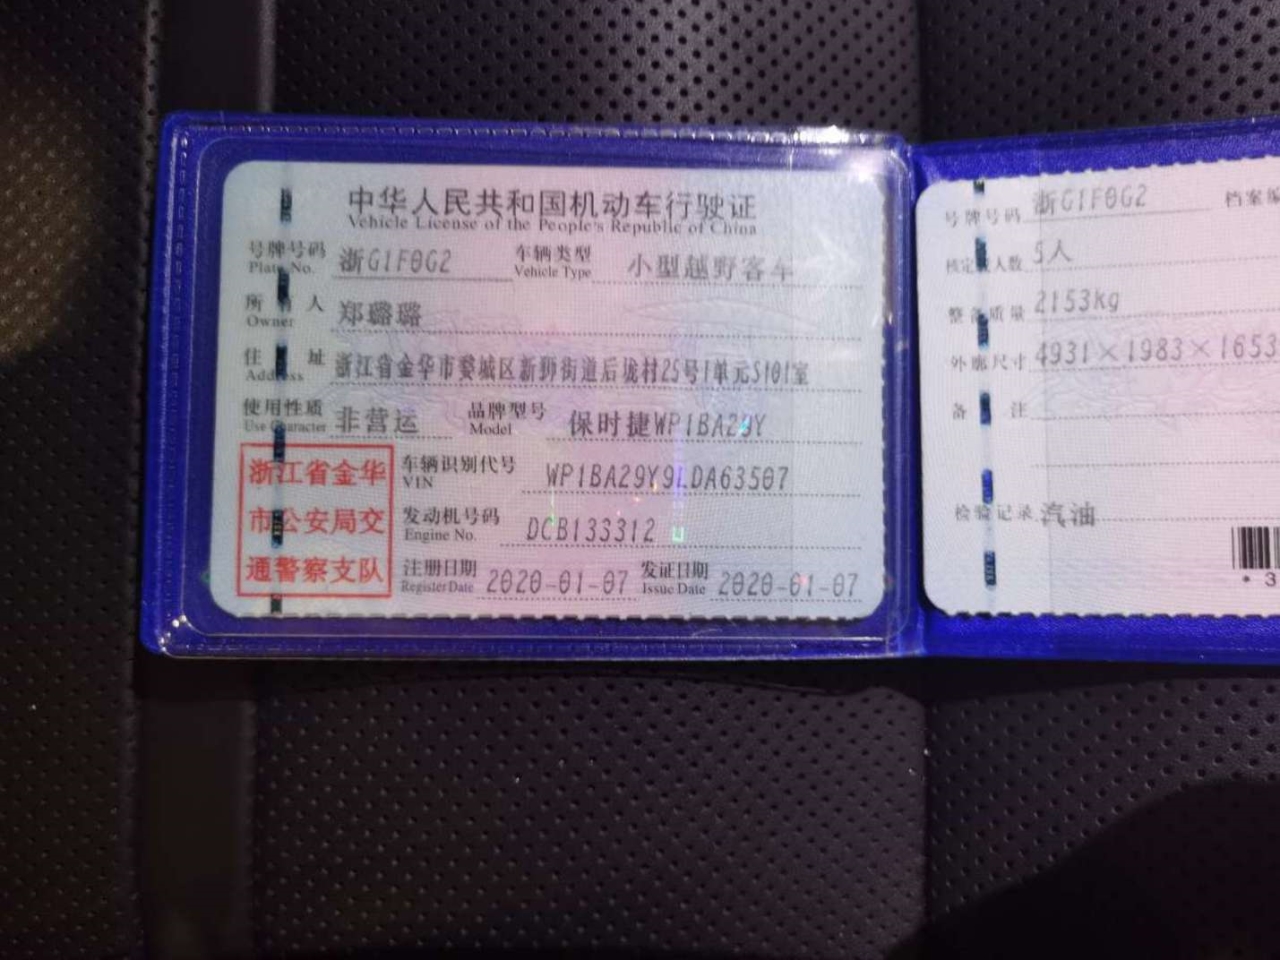 中华人民共和国机动车行驶证
Vehicle License of the People's Republic of China
号牌号码 浙G1F0G2 车辆类型 小型越野客车
Plate No. Vehicle Type
所有人 郑璐璐
Owner
住址 浙江省金华市婺城区新狮街道后垅村25号1单元S101室
Address
使用性质 非营运 品牌型号 保时捷WP1BA29Y
Use Character Model
浙江省金华
市公安局交
通警察支队
车辆识别代号 WP1BA29Y9LDA63507
VIN
发动机号码 DCB133312
Engine No.
注册日期 2020-01-07 发证日期 2020-01-07
Register Date Issue Date
号牌号码 浙G1F0G2 档案编
核定载人数 5人
整备质量 2153kg
外廓尺寸 4931×1983×1653
备注
检验记录 汽油
*3